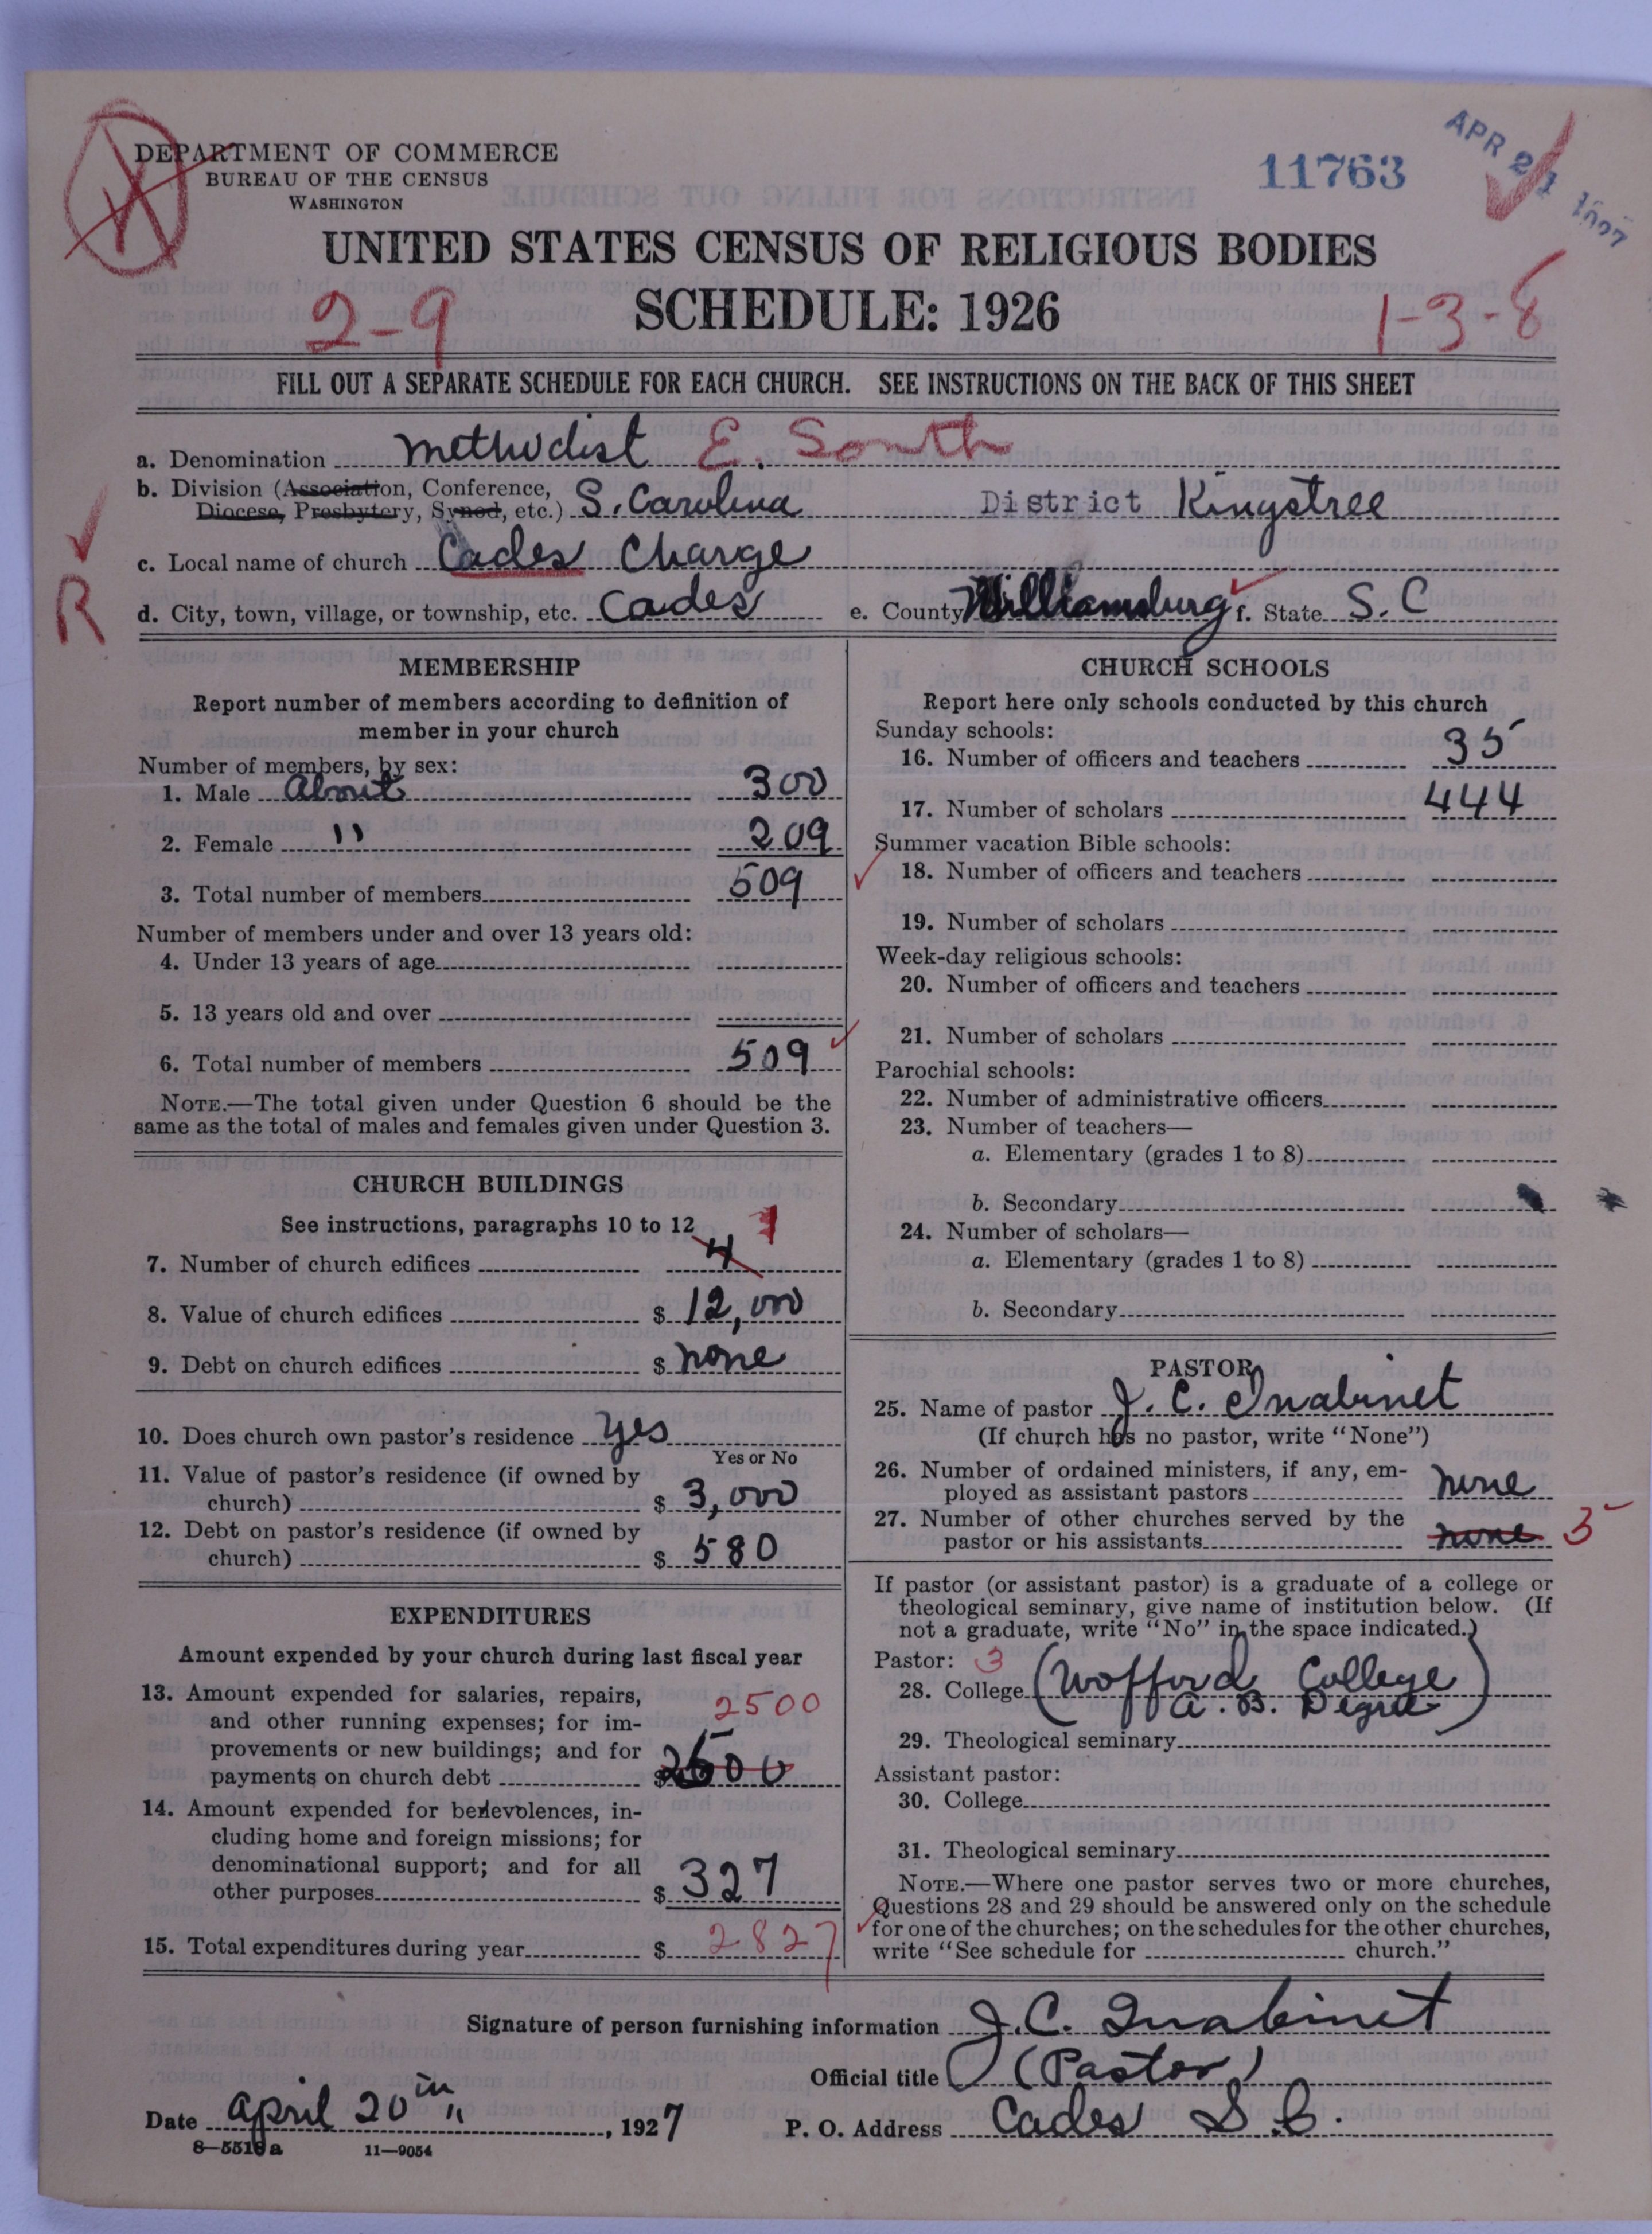 DEPARTMENT OF COMMERCE
BUREAU OF THE CENSUS
WASHINGTON
11763
APR 21 1927
UNITED STATES CENSUS OF RELIGIOUS BODIES
SCHEDULE: 1926
2-9
1-3-8
FILL OUT A SEPARATE SCHEDULE FOR EACH CHURCH. SEE INSTRUCTIONS ON THE BACK OF THIS SHEET
a. Denomination Methodist E. South
b. Division (Association, Conference, Diocese, Presbytery, Synod, etc.) S. Carolina District Kingstree
R
c. Local name of church Cades Charge
d. City, town, village, or township, etc. Cades e. County Williamsburg f. State S.C
MEMBERSHIP
Report number of members according to definition of
member in your church
Number of members, by sex:
1. Male About 300
2. Female " 209
3. Total number of members 509
Number of members under and over 13 years old:
4. Under 13 years of age
5. 13 years old and over
6. Total number of members 509
NOTE.—The total given under Question 6 should be the
same as the total of males and females given under Question 3.
CHURCH BUILDINGS
See instructions, paragraphs 10 to 12
7. Number of church edifices 4 1
8. Value of church edifices $ 12,000
9. Debt on church edifices $ none
10. Does church own pastor's residence yes
Yes or No
11. Value of pastor's residence (if owned by
church) $ 3,000
12. Debt on pastor's residence (if owned by
church) $ 580
EXPENDITURES
Amount expended by your church during last fiscal year
13. Amount expended for salaries, repairs,
and other running expenses; for im- 2500
provements or new buildings; and for
payments on church debt $ 2500
14. Amount expended for benevolences, in-
cluding home and foreign missions; for
denominational support; and for all
other purposes $ 327
15. Total expenditures during year $ 2827
CHURCH SCHOOLS
Report here only schools conducted by this church
Sunday schools:
16. Number of officers and teachers 35
17. Number of scholars 444
Summer vacation Bible schools:
18. Number of officers and teachers
19. Number of scholars
Week-day religious schools:
20. Number of officers and teachers
21. Number of scholars
Parochial schools:
22. Number of administrative officers
23. Number of teachers—
a. Elementary (grades 1 to 8)
b. Secondary
24. Number of scholars—
a. Elementary (grades 1 to 8)
b. Secondary
PASTOR
25. Name of pastor J. C. Inabinet
(If church has no pastor, write "None")
26. Number of ordained ministers, if any, em-
ployed as assistant pastors none
27. Number of other churches served by the
pastor or his assistants none 3
If pastor (or assistant pastor) is a graduate of a college or
theological seminary, give name of institution below. (If
not a graduate, write "No" in the space indicated.)
Pastor: 3
28. College (Wofford College
A. B. Degree)
29. Theological seminary
Assistant pastor:
30. College
31. Theological seminary
NOTE.—Where one pastor serves two or more churches,
Questions 28 and 29 should be answered only on the schedule
for one of the churches; on the schedules for the other churches,
write "See schedule for church."
Signature of person furnishing information J. C. Inabinet
Official title (Pastor)
Date April 20th, 1927 P. O. Address Cades S.C.
8—5516a 11—9054